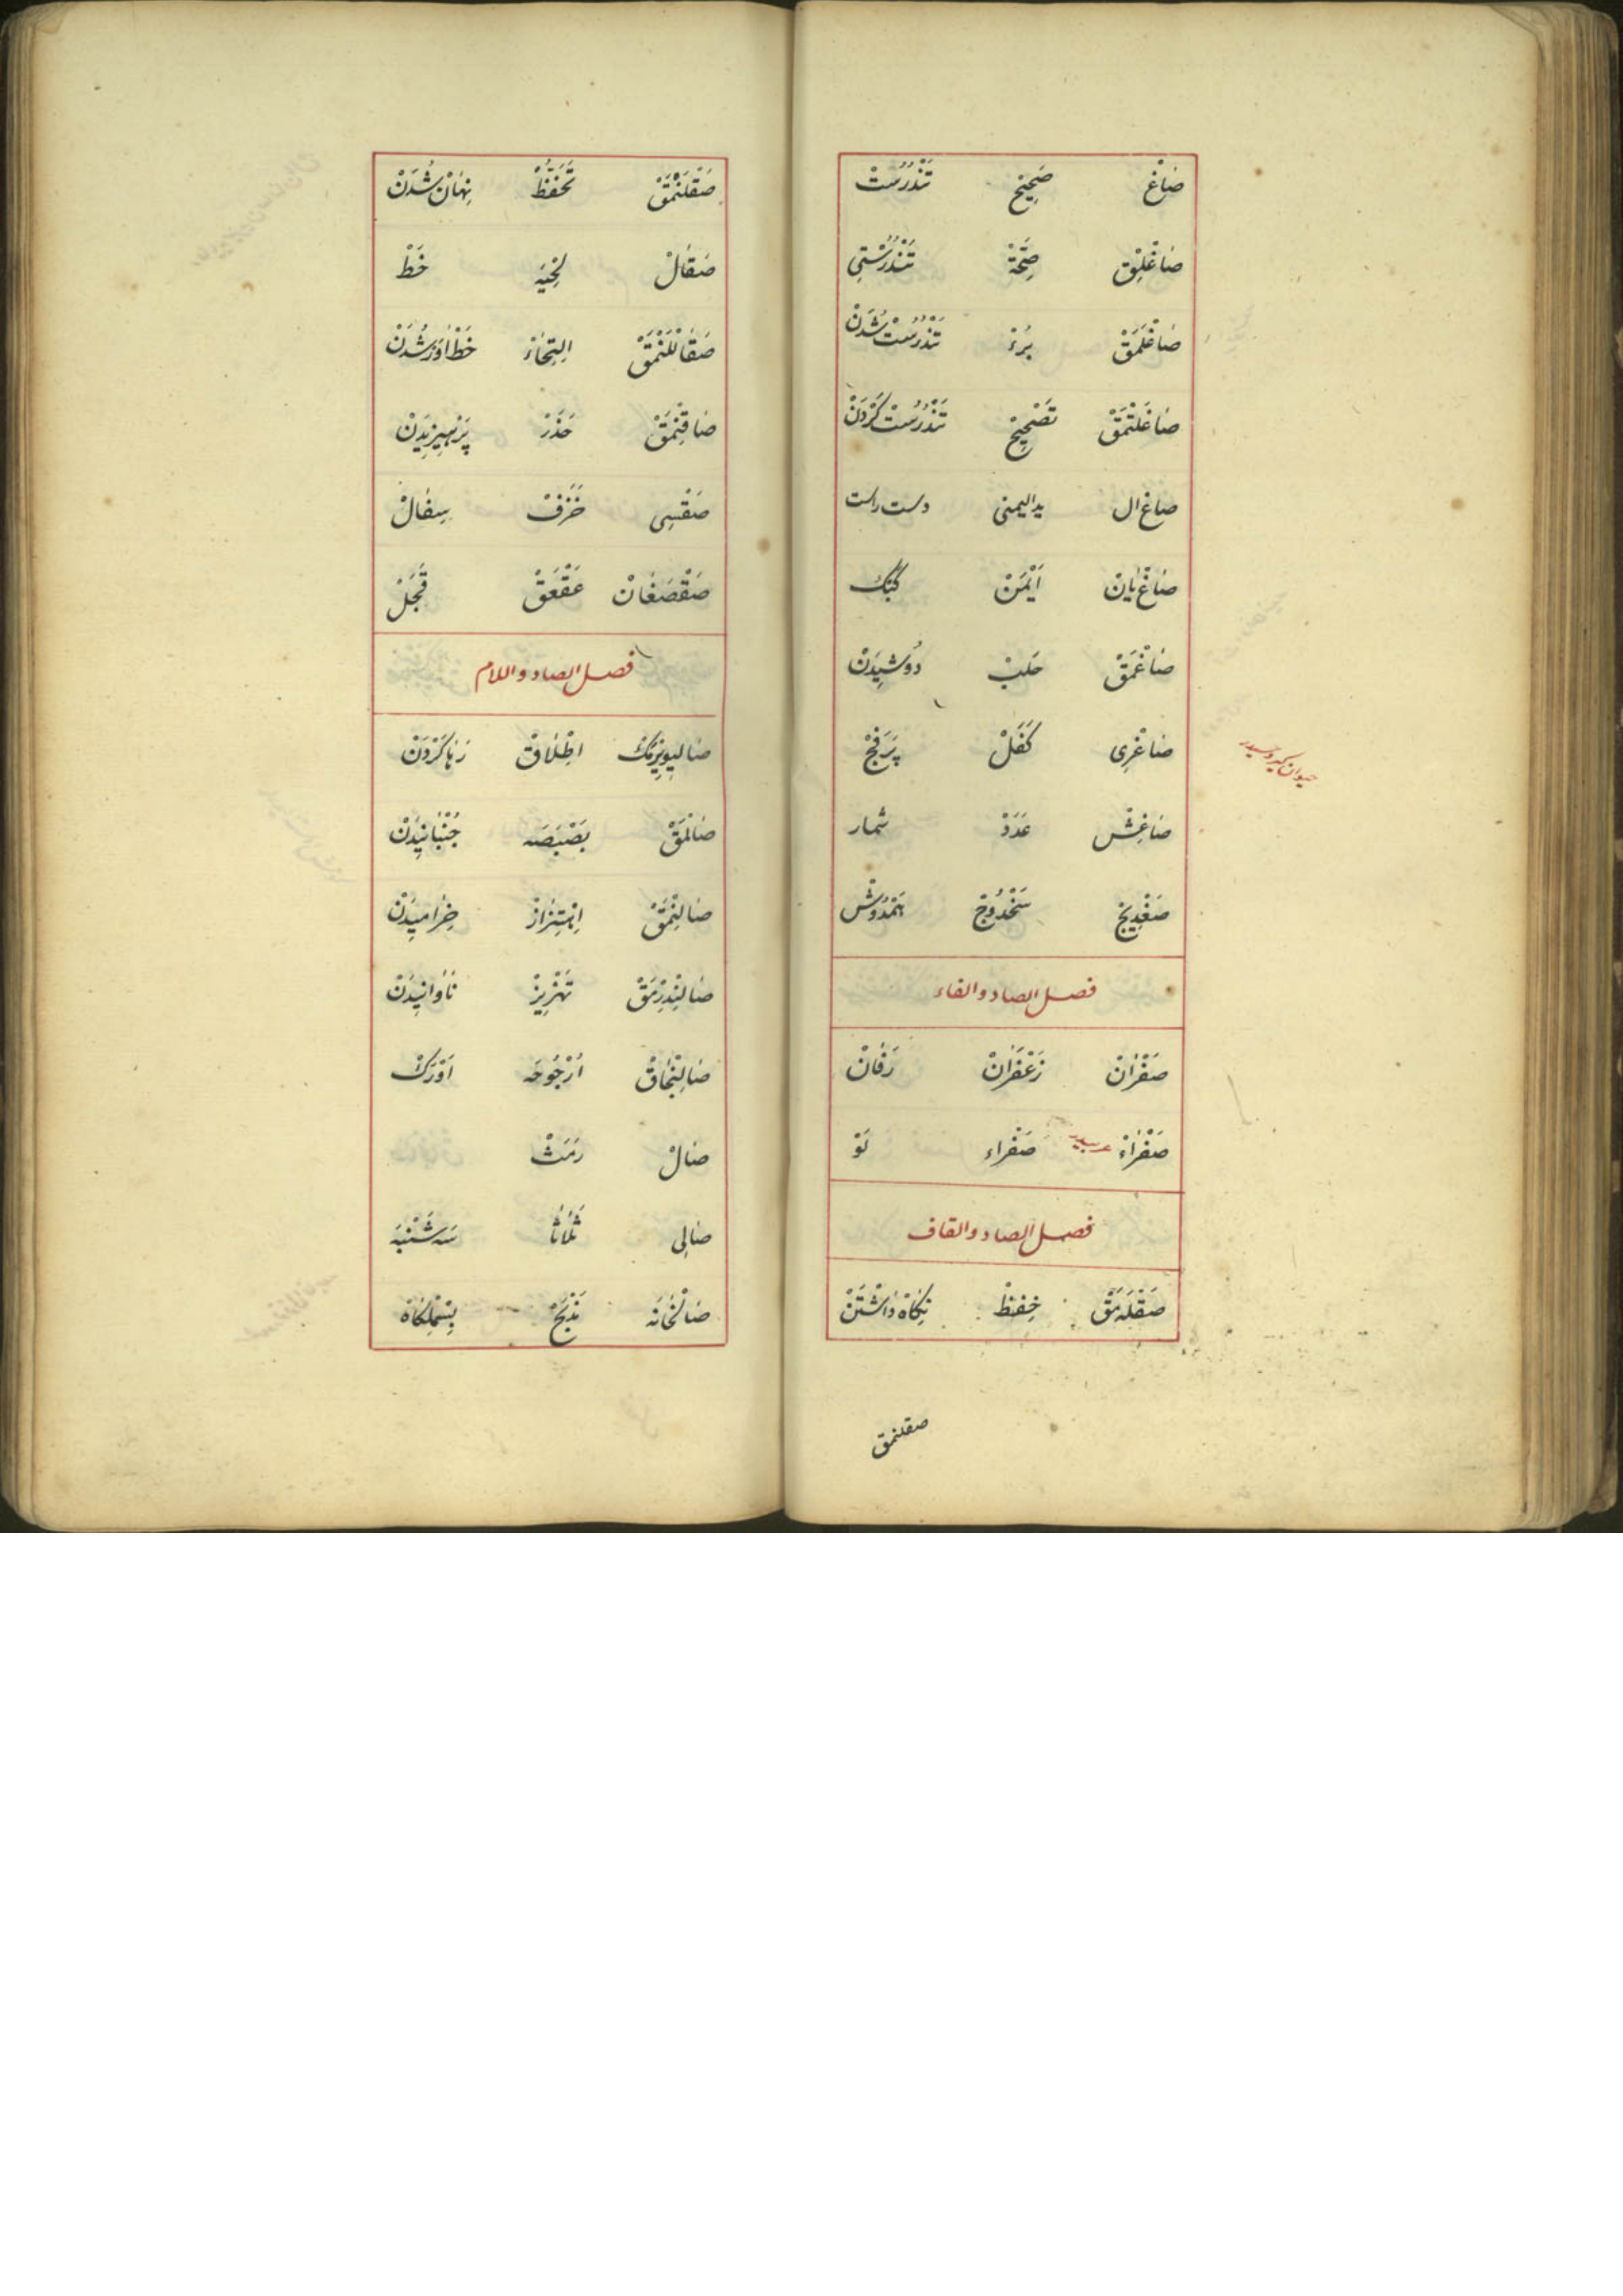 صَاغْ صَحِیحْ تَنْدُرُسْتْ
صَاغْلِقْ صِحَّةْ تَنْدُرُسْتِی
صَاغْلَمَقْ بُرْءْ تَنْدُرُسْتْ شُدَنْ
صَاغَلْتْمَقْ تَصْحِیحْ تَنْدُرُسْتْ كَرْدَنْ
صاغ ال يد اليمنى دست راست
صَاغْ يَانْ اَيْمَنْ
صَاغْمَقْ حَلْبْ دُوشِيدَنْ
صَاغْرِى كَفَلْ
صَاغِشْ عَدَدْ شمار
صَغْدِيجْ
فصل الصاد والفاء
صَفْرَانْ زَعْفَرَانْ رَفَانْ
صَفْرَاءْ صَفْرَاء
فصل الصاد والقاف
صَقْلَه مَقْ حِفْظْ نِكَاهْ دَاشْتَنْ
صقلنمق
صَقْلَنْمَقْ تَحَفُّظْ نِهَانْ شُدَنْ
صَقَالْ لِحْيَه خَطْ
صَقَالْلَنْمَقْ اِلْتِحَاءْ خَطْ اوَرْ شُدَنْ
صَاقِنْمَقْ حَذَرْ پَرْهِيزِيدَنْ
صَقْسِى خَزَفْ سِفَالْ
صَقْصَغَانْ عَقْعَقْ
فصل الصاد واللام
صَالِيوِيرْمَكْ اِطْلَاقْ رَهَا كَرْدَنْ
صَالْمَقْ بَصْبَصَه جُنْبَانِيدَنْ
صَالِنْمَقْ اِهْتِزَازْ خِرَامِيدَنْ
صَالِنْدِرْمَقْ تَهْزِيزْ نَاوَانِيدَنْ
صَالِنْجَاقْ اُرْجُوحَه اَوْرَكْ
صَالْ رَمَثْ
صَالِى ثَلَاثَا سَه شَنْبَه
صَالْخَانَه مَذْبَحْ بِسْمِلْكَاهْ